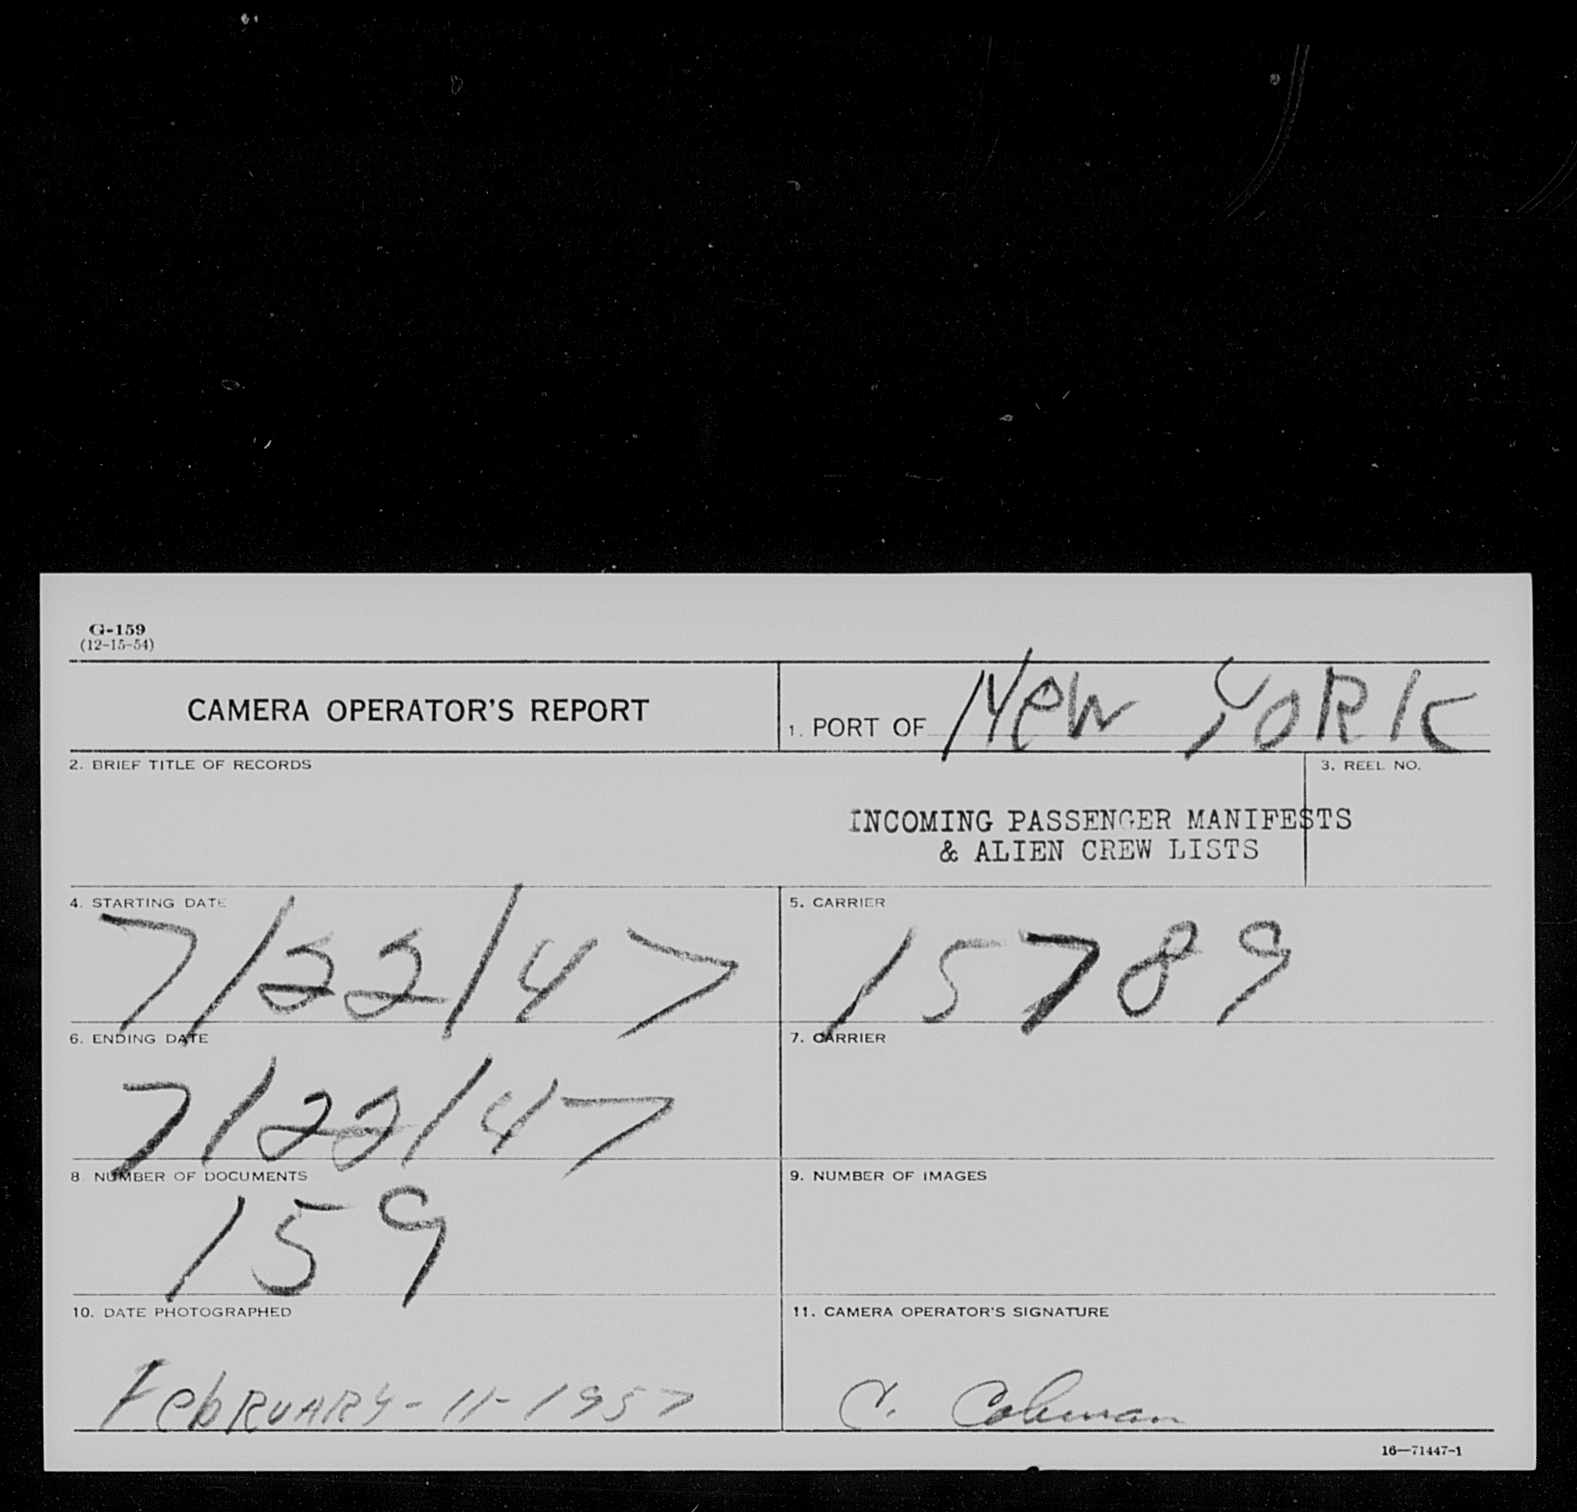 G-159
(12-15-54)
CAMERA OPERATOR'S REPORT
1. PORT OF New YORK
2. BRIEF TITLE OF RECORDS
3. REEL NO.
INCOMING PASSENGER MANIFESTS
& ALIEN CREW LISTS
4. STARTING DATE
7/22/47
5. CARRIER
15789
6. ENDING DATE
7/22/47
7. CARRIER
8 NUMBER OF DOCUMENTS
159
9. NUMBER OF IMAGES
10. DATE PHOTOGRAPHED
FebRUARY-11-1957
11. CAMERA OPERATOR'S SIGNATURE
C. Coleman
16—71447-1